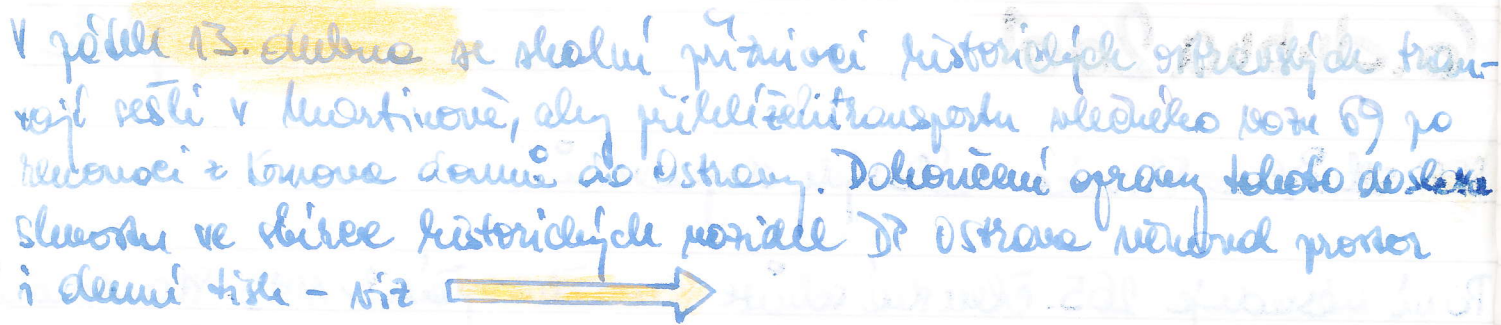 V pátek 13. dubna se skalní příznivci historických ostravských tram-
vají sešli v Martinově, aby přihlíželi transportu vlečného vozu 69 po
renovaci z Krnova domů do Ostravy. Dokončení opravy tohoto doslova
skvostu ve sbírce historických vozidel DP Ostrava věnoval prostor
i denní tisk - viz